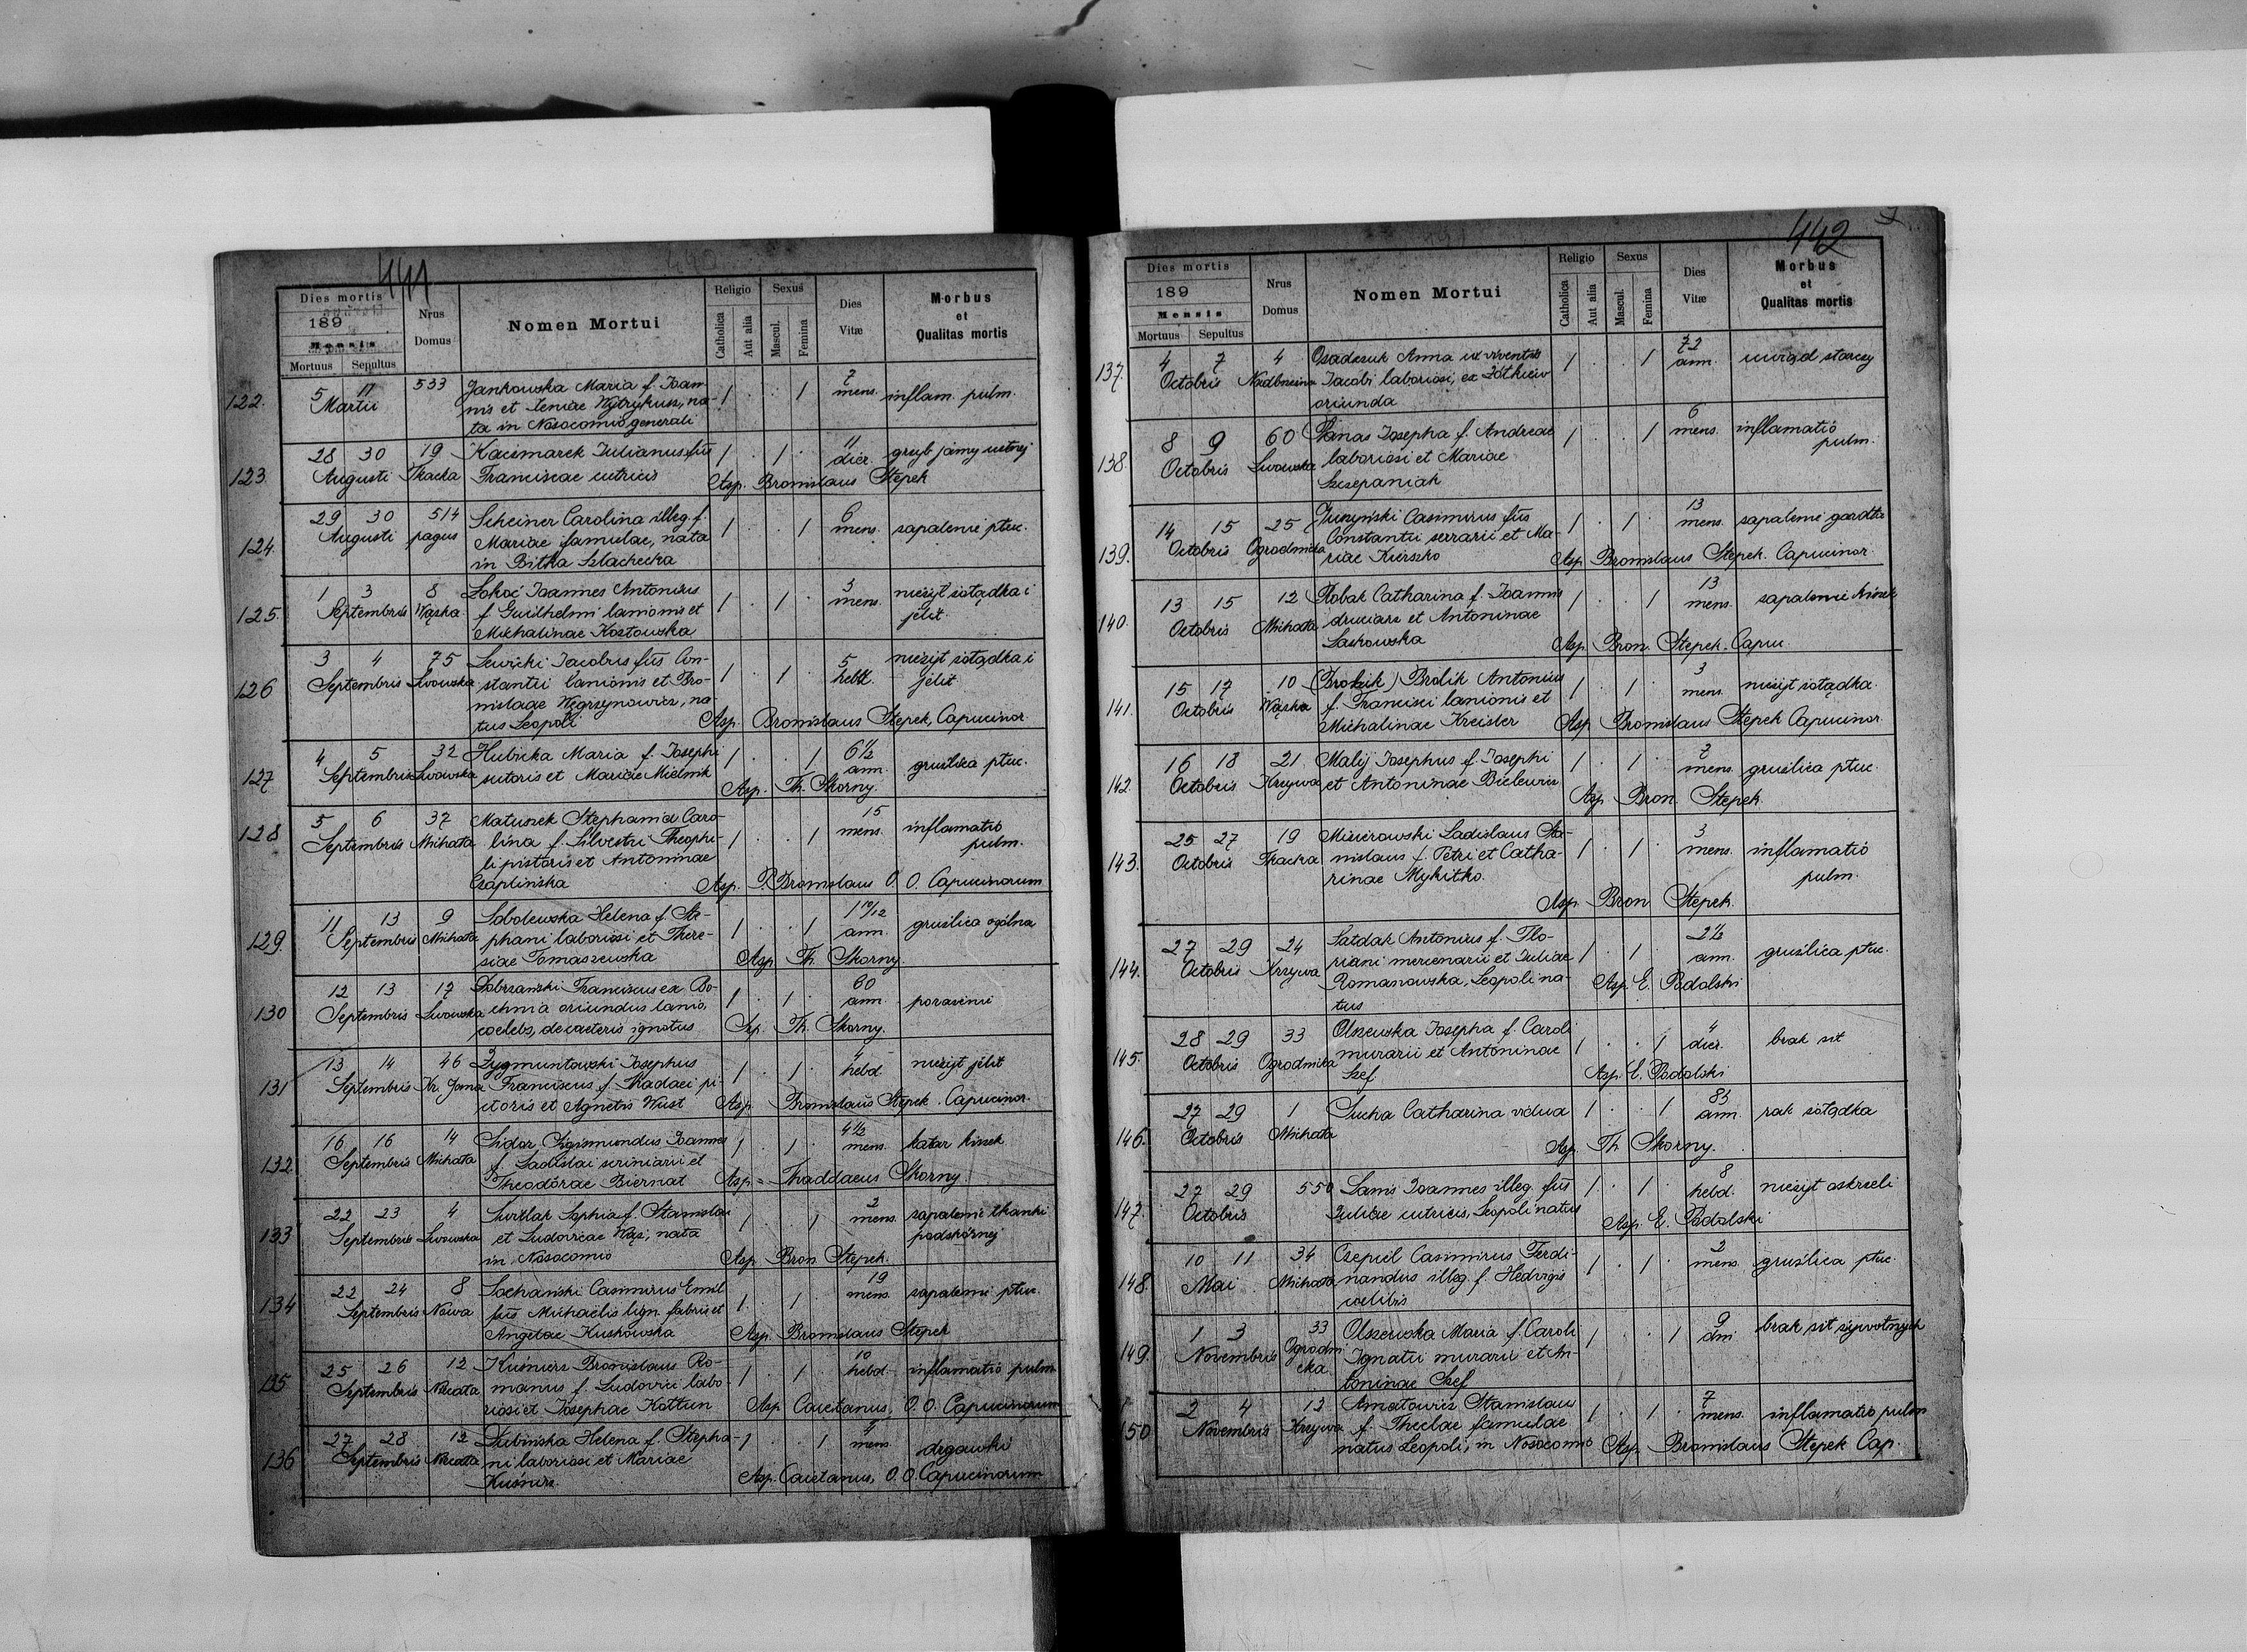 441
Dies mortis
189
Mensis
Mortuus Sepultus
Nrus
Domus
Nomen Mortui
Religio
Catholica
Aut alia
Sexus
Mascul.
Femina
Dies
Vitæ
Morbus
et
Qualitas mortis
122. 5 17 533 Jankowska Maria f. Joan- 1 . . 1 7
Martii nis et Xeniae Wytrykusz, na- mens. inflam. pulm.
ta in Nosocomio generali
123. 28 30 19 Kaczmarek Julianus fus 1 . 1 . 11
Augusti Tkacka Franciscae nutricis dier. grzyb jamy ustnej
Asp. Bronislaus Stepek
124. 29 30 514 Scheiner Carolina illeg. f. 1 . . 1 6
Augusti pagus Mariae famulae, nata mens. zapalenie płuc.
in Bitka Szlachecka
125. 1 3 8 Łokoć Joannes Antonius 1 . 1 . 3
Septembris Wąska f. Guilhelmi lanionis et mens. nieżyt żołądka i
Michalinae Kozłowska jelit.
126 3 4 75 Lewicki Jacobus fus Con- 1 . 1 . 5 nieżyt żołądka i
Septembris Lwowska stantii lanionis et Bro- hebd. jelit
nislaae Węgrzynowicz, na-
tus Leopoli Asp. Bronislaus Stepek, Capucinor.
127 4 5 32 Hubicka Maria f. Josephi 1 . . 1 6½
Septembris Lwowska sutoris et Mariae Mielnik ann. gruźlica płuc.
Asp. Th. Skorny.
128 5 6 37 Matuszek Stephania Caro- 1 . . 1 15
Septembris Michała lina f. Silvestri Theophi- mens. inflamatio
li pistoris et Antoninae pulm.
Czaplińska Asp. P. Bronislaus O. O. Capucinorum
129. 11 13 9 Sobolewska Helena f. Ste- 1 . . 1 1 10/12
Septembris Michała phani laboriosi et There- ann. gruźlica ogólna
siae Tomaszewska Asp. Th. Skorny.
130 12 13 17 Dobrzański Franciscus ex Bo- 1 . 1 . 60
Septembris Lwowska chnia oriundus lanio, ann. porażenie
coelebs, de caeteris ignotus Asp. Th. Skorny.
131 13 14 46 Zygmuntowski Josephus 1 . 1 . 4
Septembris Kr. Jana Franciscus f. Thadaei pi- hebd. nieżyt jelit
ctoris et Agnetis Wust Asp. Bronislaus Stepek. Capucinor.
132. 16 16 14 Sidor Sigismundus Joannes 1 . 1 . 4½
Septembris Michała f. Ladislai scriniarii et mens. katar kiszek
Theodorae Biernat Asp. Thaddaeus Skorny.
133 22 23 4 Świżlak Sophia f. Stanislai 1 . 1 2
Septembris Lwowska et Ludovicae Wąs, nata mens. zapalenie tkanki
in Nosocomio podskórnej
Asp. Bron Stepek.
134 22 24 8 Sochański Casimirus Emil 1 . 1 . 19
Septembris Nowa fus Michaëlis lign. fabris et mens. zapalenie płuc
Angelae Kuskowska Asp. Bronislaus Stepek
135 25 26 12 Kuśnierz Bronislaus Ro- 1 . 1 . 10
Septembris manus f. Ludovici labo- hebd. inflamatio pulm.
riosi et Josephae Kottun Asp. Caietanus, O. O. Capucinorum
136 27 28 12 Łubińska Helena f. Stepha- 1 . 1
Septembris ni laboriosi et Mariae mens. drgawki
Kuśnierz. Asp. Caietanus, O. O. Capucinorum
442
Dies mortis
189
Mensis
Mortuus Sepultus
Nrus
Domus
Nomen Mortui
Religio
Catholica
Aut alia
Sexus
Mascul.
Femina
Dies
Vitæ
Morbus
et
Qualitas mortis
137. 4 7 4 Osadczuk Anna ux viventis 1 . . 1 72
Octobris Nadbrzeżna Jacobi laboriosi, ex Żółkiew ann. uwiąd starczy
oriunda
138. 8 9 60 Panas Josepha f. Andreae 1 . . 1 6
Octobris Lwowska laboriosi et Mariae mens. inflamatio
Szczepaniak pulm.
139. 14 15 25 Juszyński Casimirus fus 1 . 1 . 13
Octobris Ogrodnicka Constantii serrarii et Ma- mens. zapalenie gardła
riae Kierszko Asp. Bronislaus Stepek. Capucinor.
140. 13 15 12 Robak Catharina f. Joannis 1 . . 1 13
Octobris Michała druciarz et Antoninae mens. zapalenie kiszek
Laskowska Asp. Bron. Stepek. Capuc.
141. 15 17 10 (Brolik) Brolik Antonius 1 . 1 . 3
Octobris Wąska f. Francisci lanionis et mens. nieżyt żołądka.
Michalinae Kreisler Asp. Bronislaus Stepek Capucinor.
142. 16 18 21 Malij Josephus f. Josephi 1 . 1 . 7
Octobris Krzywa et Antoninae Bielewicz mens. gruźlica płuc.
Asp. Bron. Stepek.
143. 25 27 19 Misierowski Ladislaus Sta- 1 . 1 . 3
Octobris Tkacka nislaus f. Petri et Catha- mens. inflamatio
rinae Mykitko. pulm.
Asp. Bron Stepek.
144. 27 29 24 Satdak Antonius f. Flo- 1 . 1 . 2½
Octobris Krzywa riani mercenarii et Juliae ann. gruźlica płuc.
Romanowska, Leopoli na- Asp. E. Podolski
tus
145. 28 29 33 Olszewska Josepha f. Caroli 1 . . 1 4
Octobris Ogrodnicka murarii et Antoninae dier. brak sił
Szef Asp. E. Podolski
146. 27 29 1 Sucha Catharina vidua 1 . . 1 83
Octobris Michała ann. rak żołądka
Asp. Th Skorny.
147. 27 29 550 Sanis Joannes illeg. fus 1 . 1 . 8
Octobris Juliae nutricis, Leopoli natus hebd. nieżyt oskrzeli
Asp. E. Podolski
148. 10 11 34 Czepiel Casimirus Ferdi- 1 . 1 . 2
Mai Michała nandus illeg. f. Hedvigis mens. gruźlica płuc.
coelibis
149. 1 3 33 Olszewska Maria f. Caroli 1 . . 1 9
Novembris Ogrodni Ignatii murarii et An- dni brak sił żywotnych
cka toninae Szef
150 2 4 13 Amatowicz Stanislaus 1 . 1 . 7
Novembris Krzywa f. Theclae famulae mens. inflamatio pulm
natus Leopoli, in Nosocomio Asp. Bronislaus Stepek Cap.